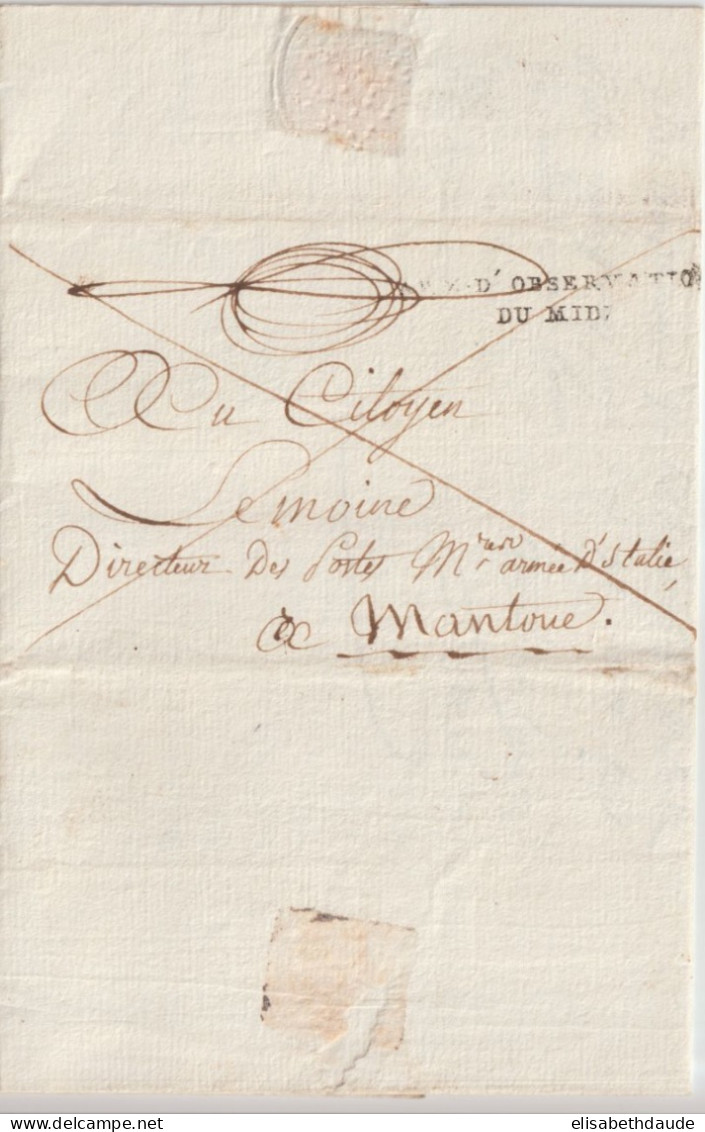 D'OBSERVATIO
DU MIDI
Au Citoyen
Lemoine
Directeur Des Postes Mres armée D'Italie,
à Mantoue.
elisabethdaude